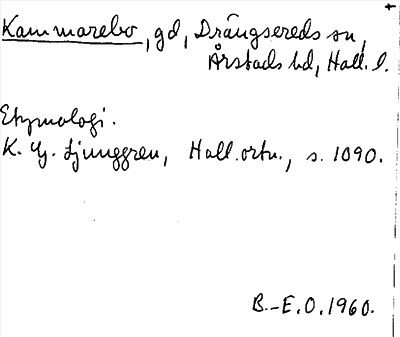 Kammarebo, gd, Drängsereds sn,
Årstads hd, Hall. l.
Etymologi.
K. G. Ljunggren, Hall. ortn., s. 1090.
B.-E. O. 1960.